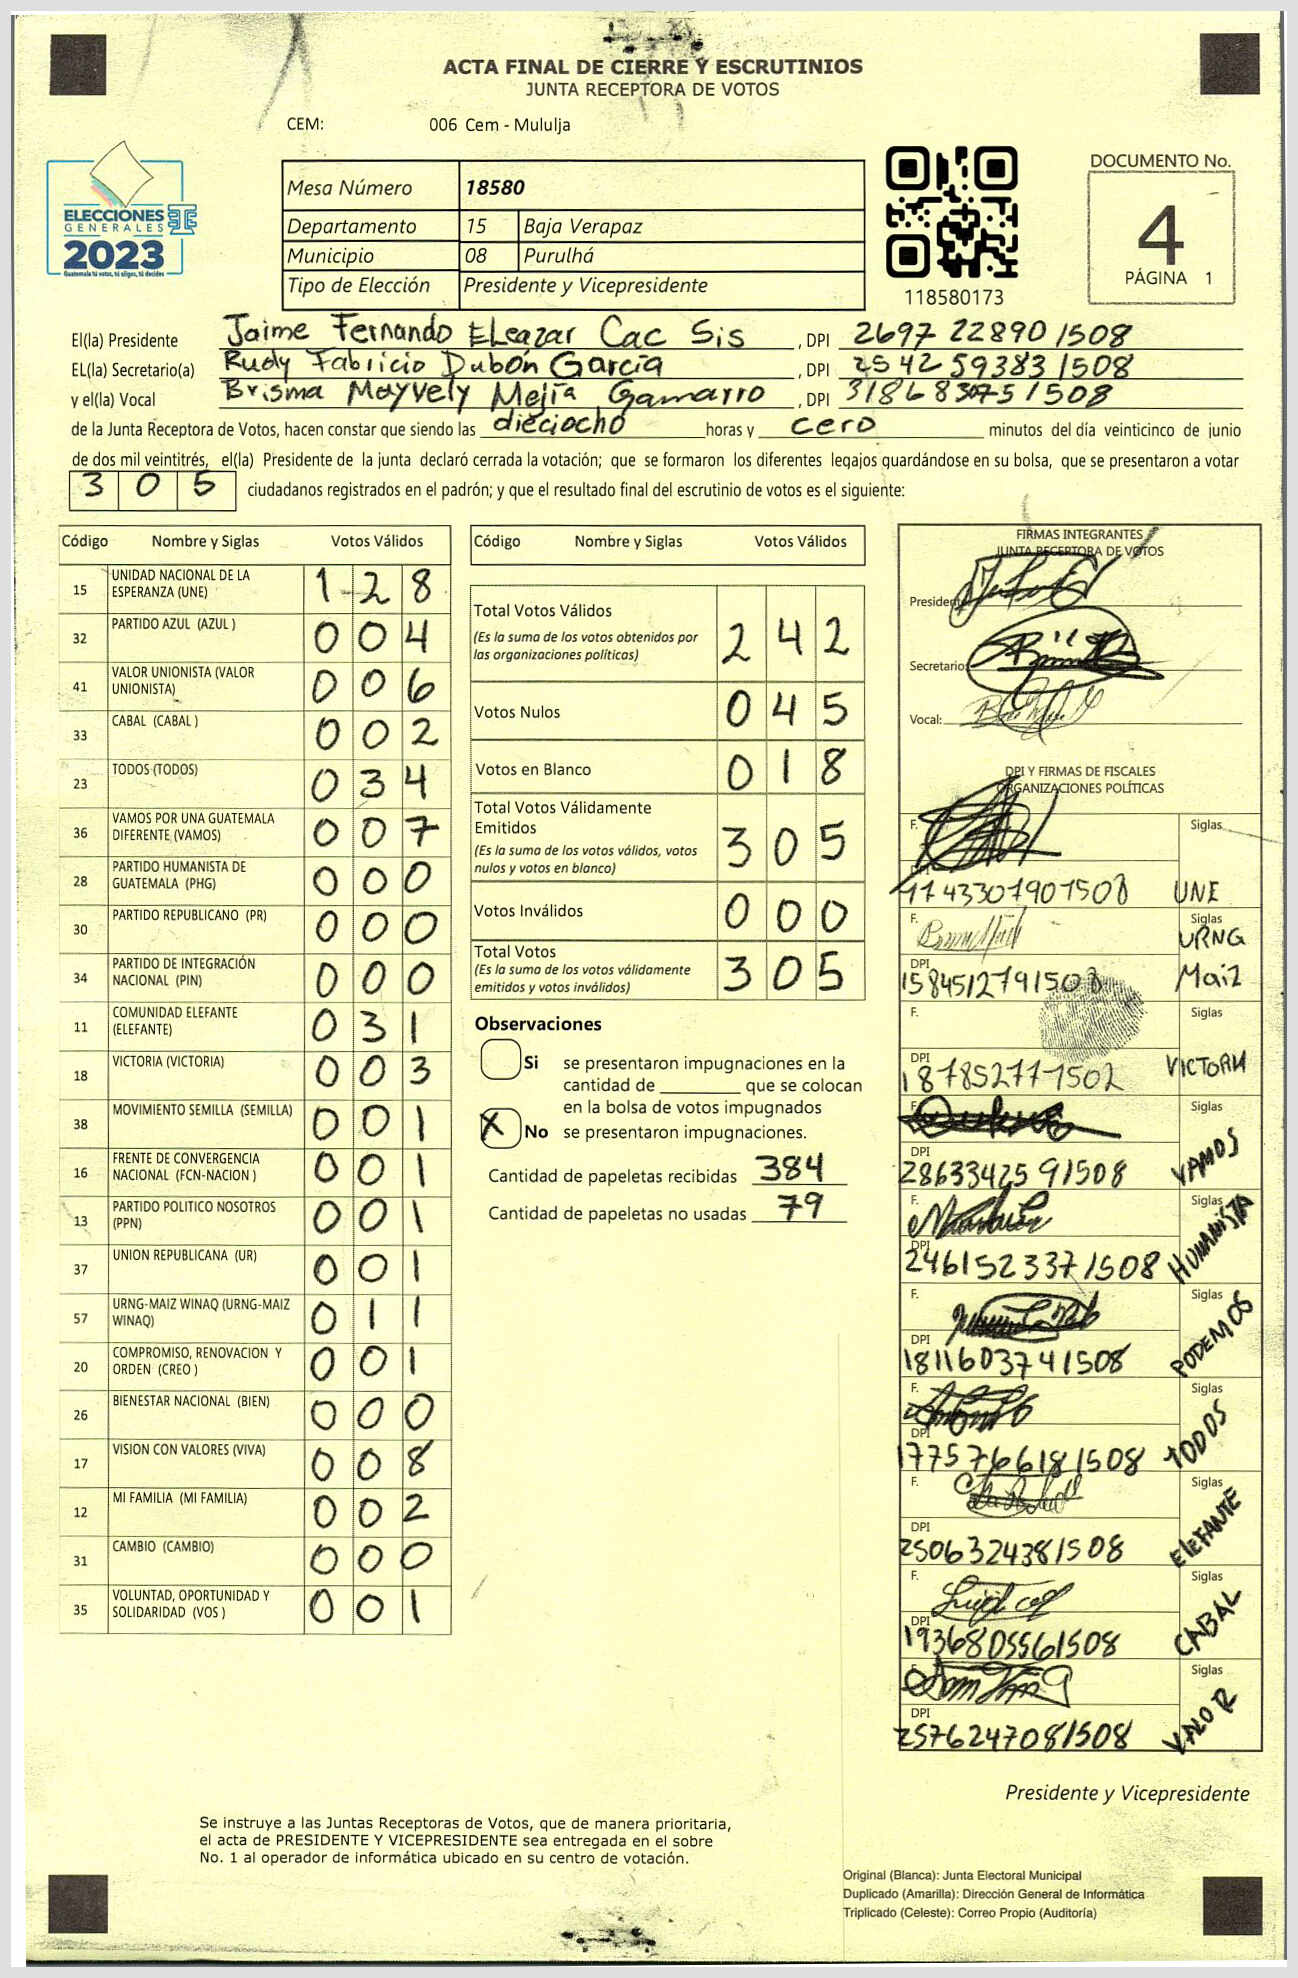 ACTA FINAL DE CIERRE Y ESCRUTINIOS
JUNTA RECEPTORA DE VOTOS
CEM: 006 Cem - Mululja
ELECCIONES
GENERALES
2023
Guatemala tú votas, tú eliges, tú decides
Mesa Número 18580
Departamento 15 Baja Verapaz
Municipio 08 Purulhá
Tipo de Elección Presidente y Vicepresidente
118580173
DOCUMENTO No.
4
PÁGINA 1
El(la) Presidente Jaime Fernando ELeazar Cac Sis , DPI 2697 22890 1508
EL(la) Secretario(a) Rudy Fabricio Dubón García , DPI 2542 59383 1508
y el(la) Vocal Brisma Mayvely Mejía Gamarro , DPI 3186830751508
de la Junta Receptora de Votos, hacen constar que siendo las dieciocho horas y cero minutos del día veinticinco de junio
de dos mil veintitrés, el(la) Presidente de la junta declaró cerrada la votación; que se formaron los diferentes legajos guardándose en su bolsa, que se presentaron a votar
305 ciudadanos registrados en el padrón; y que el resultado final del escrutinio de votos es el siguiente:
Código Nombre y Siglas Votos Válidos
15 UNIDAD NACIONAL DE LA ESPERANZA (UNE) 128
32 PARTIDO AZUL (AZUL ) 004
41 VALOR UNIONISTA (VALOR UNIONISTA) 006
33 CABAL (CABAL ) 002
23 TODOS (TODOS) 034
36 VAMOS POR UNA GUATEMALA DIFERENTE (VAMOS) 007
28 PARTIDO HUMANISTA DE GUATEMALA (PHG) 000
30 PARTIDO REPUBLICANO (PR) 000
34 PARTIDO DE INTEGRACIÓN NACIONAL (PIN) 000
11 COMUNIDAD ELEFANTE (ELEFANTE) 031
18 VICTORIA (VICTORIA) 003
38 MOVIMIENTO SEMILLA (SEMILLA) 001
16 FRENTE DE CONVERGENCIA NACIONAL (FCN-NACION ) 001
13 PARTIDO POLITICO NOSOTROS (PPN) 001
37 UNION REPUBLICANA (UR) 001
57 URNG-MAIZ WINAQ (URNG-MAIZ WINAQ) 011
20 COMPROMISO, RENOVACION Y ORDEN (CREO ) 001
26 BIENESTAR NACIONAL (BIEN) 000
17 VISION CON VALORES (VIVA) 008
12 MI FAMILIA (MI FAMILIA) 002
31 CAMBIO (CAMBIO) 000
35 VOLUNTAD, OPORTUNIDAD Y SOLIDARIDAD (VOS ) 001
Código Nombre y Siglas Votos Válidos
Total Votos Válidos 242
(Es la suma de los votos obtenidos por
las organizaciones políticas)
Votos Nulos 045
Votos en Blanco 018
Total Votos Válidamente
Emitidos 305
(Es la suma de los votos válidos, votos
nulos y votos en blanco)
Votos Inválidos 000
Total Votos 305
(Es la suma de los votos válidamente
emitidos y votos inválidos)
Observaciones
Si se presentaron impugnaciones en la
cantidad de ________ que se colocan
en la bolsa de votos impugnados
X No se presentaron impugnaciones.
Cantidad de papeletas recibidas 384
Cantidad de papeletas no usadas 79
FIRMAS INTEGRANTES
JUNTA RECEPTORA DE VOTOS
Presidente:
Secretario:
Vocal:
DPI Y FIRMAS DE FISCALES
ORGANIZACIONES POLÍTICAS
F. Siglas
DPI 1743307901508 UNE
F. Siglas
DPI 1584512791508 URNG Maiz
F. Siglas
DPI 1878527771502 VICTORIA
F. Siglas
DPI 2863342591508 VAMOS
F. Siglas
DPI 2461523371508 HUMANISTA
F. Siglas
DPI 1811603741508 PODEMOS
F. Siglas
DPI 1775766181508 TODOS
F. Siglas
DPI 2506324381508 ELEFANTE
F. Siglas
DPI 1936805561508 CABAL
F. Siglas
DPI 2576247081508 VALOR
Presidente y Vicepresidente
Se instruye a las Juntas Receptoras de Votos, que de manera prioritaria,
el acta de PRESIDENTE Y VICEPRESIDENTE sea entregada en el sobre
No. 1 al operador de informática ubicado en su centro de votación.
Original (Blanca): Junta Electoral Municipal
Duplicado (Amarilla): Dirección General de Informática
Triplicado (Celeste): Correo Propio (Auditoría)